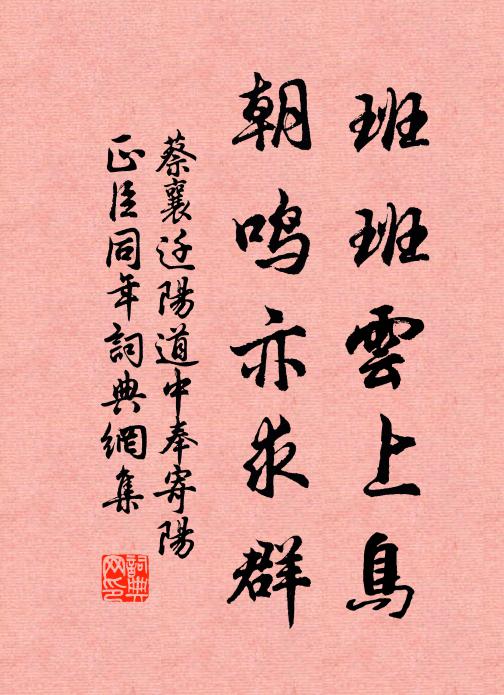 班班雲上鳥
朝鳴亦求群
蔡襄迁陽道中奉寄陽
正臣同年詞典網集
詞典
网印